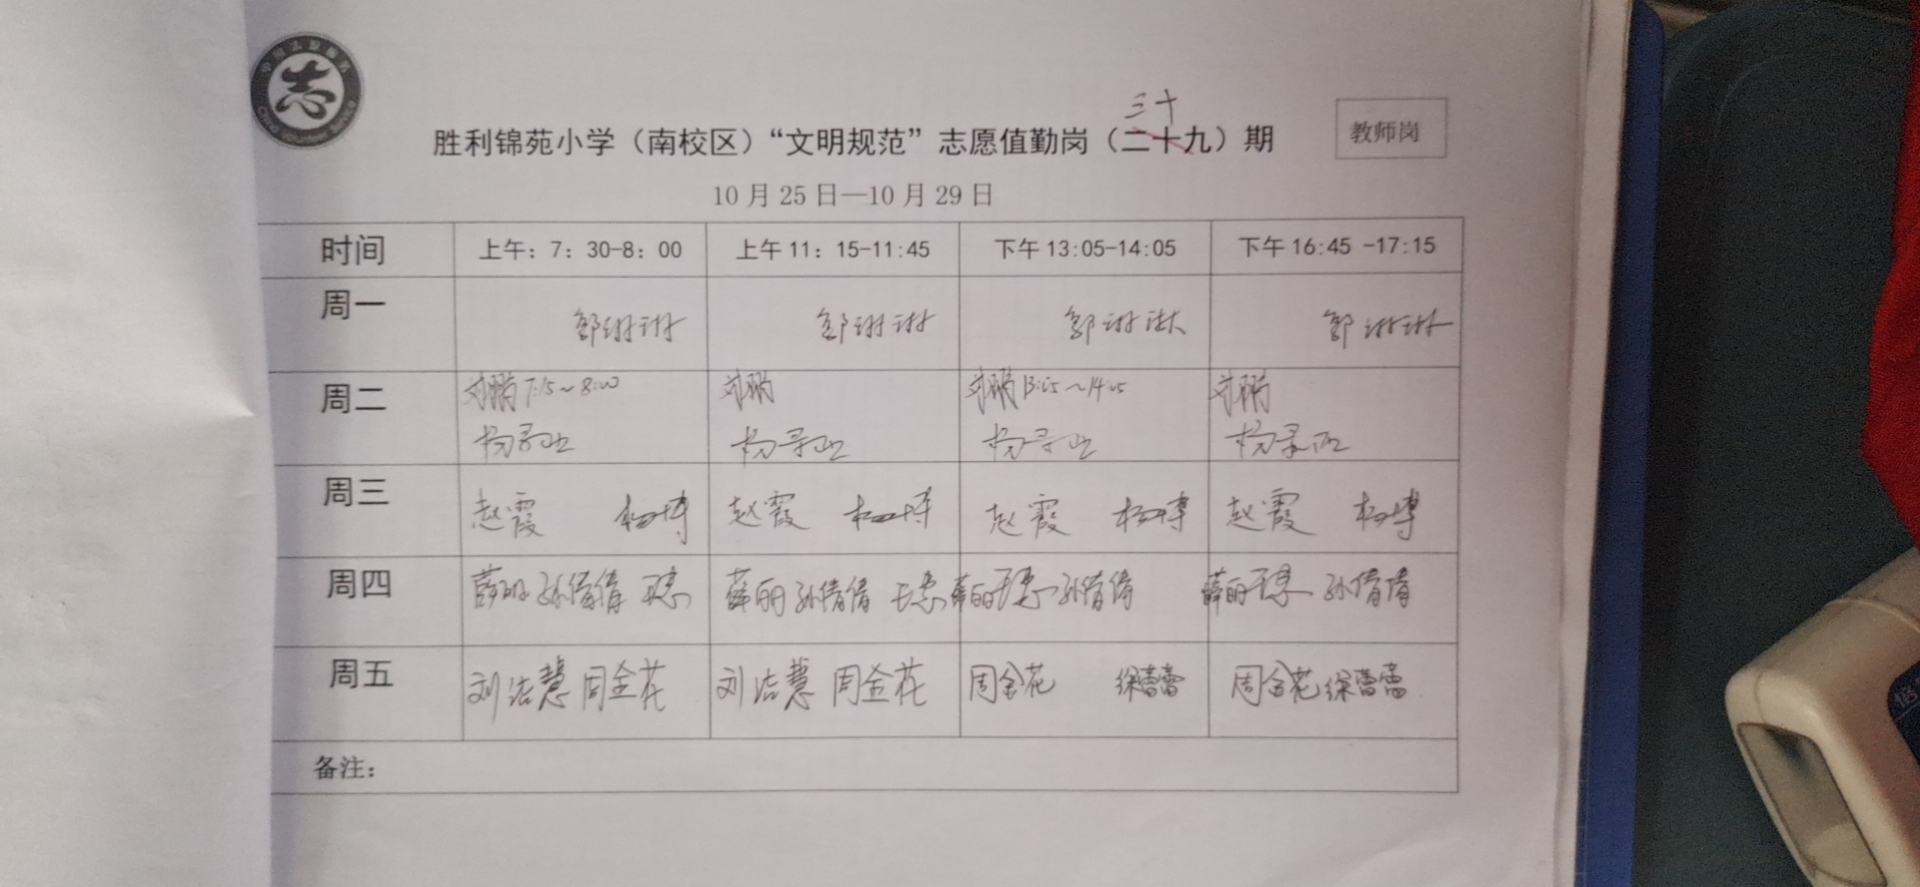 志
三十
胜利锦苑小学（南校区）“文明规范”志愿值勤岗（二十九）期
教师岗
10月25日—10月29日
时间 上午：7：30-8：00 上午11：15-11:45 下午13:05-14:05 下午16:45 -17:15
周一 邹琳琳 邹琳琳 邹琳琳 邹琳琳
周二 刘鹏7:15~8:00 刘鹏 刘鹏13:05~14:05 刘鹏
周三 赵霞 杨博 赵霞 杨博 赵霞 杨博 赵霞 杨博
周四 薛丽 孙倩倩 薛丽 孙倩倩 薛丽 孙倩倩 薛丽 孙倩倩
周五 刘洁慧 周金花 刘洁慧 周金花 周金花 徐蕾蕾 周金花 徐蕾蕾
备注：